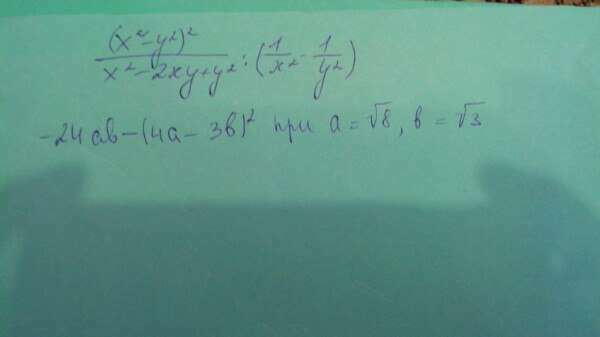 (x²-y²)²/(x²-2xy+y²) : (1/x² - 1/y²)
-24ab-(4a-3b)² при a=√8, b=√3